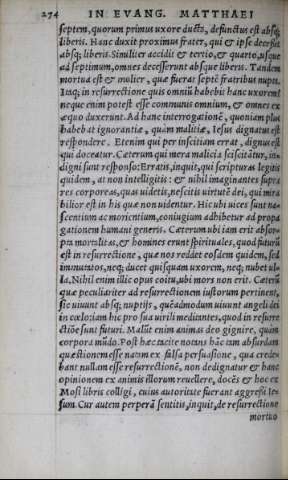 274 IN EVANG. MATTHAEI
septem, quorum primus uxore ducta, defunctus est absq;
liberis. Hanc duxit proximus frater, qui & ipse decessit
absq; liberis. Similiter accidit & tertio, & quarto, usque
ad septimum, omnes decesserunt absque liberis. Tandem
mortua est & mulier, quæ fuerat septē fratribus nupta.
Itaq; in resurrectione quis omniū habebit hanc uxorem?
neque enim potest esse communis omnium, & omnes ex
æquo duxerunt. Ad hanc interrogationē, quoniam plus
habebat ignorantiæ, quàm malitiæ, Iesus dignatus est
respondere. Etenim qui per inscitiam errat, dignus est
qui doceatur. Cæterum qui mera malicia sciscitātur, in-
digni sunt responso: Erratis, inquit, qui scripturas legitis
quidem, at non intelligitis: & nihil imaginantes supra
res corporeas, quas uidetis, nescitis uirtutē dei, qui mira
bilior est in his quæ non uidentur. Hic ubi uices sunt na-
scentium ac morientium, coniugium adhibetur ad propa
gationem humani generis. Cæterum ubi iam erit absor-
pta mortalitas, & homines erunt spirituales, quod futurū
est in resurrectione, quæ nos reddet eosdem quidem, sed
immutatos, neq; ducet quisquam uxorem, neq; nubet ul-
la. Nihil enim illic opus coitu, ubi mors non erit. Cæterū
quæ peculiariter ad resurrectionem iustorum pertinent,
sic uiuunt absq; nuptijs, quēadmodum uiuunt angeli dei
in cœlo: iam hic pro sua uirili meditantes, quod in resurre
ctiōe sunt futuri. Malūt enim animas deo gignere, quàm
corpora mūdo. Post hæc tacite notans hāc tam absurdam
quæstionem esse natam ex falsa persuasione, qua crede-
bant nullam esse resurrectionē, non dedignatur & hanc
opinionem ex animis illorum reuellere, docēs & hoc ex
Mosi libris colligi, cuius autoritate fuerant aggressi Ie-
sum. Cur autem perperā sentitis, inquit, de resurrectione
mortuo